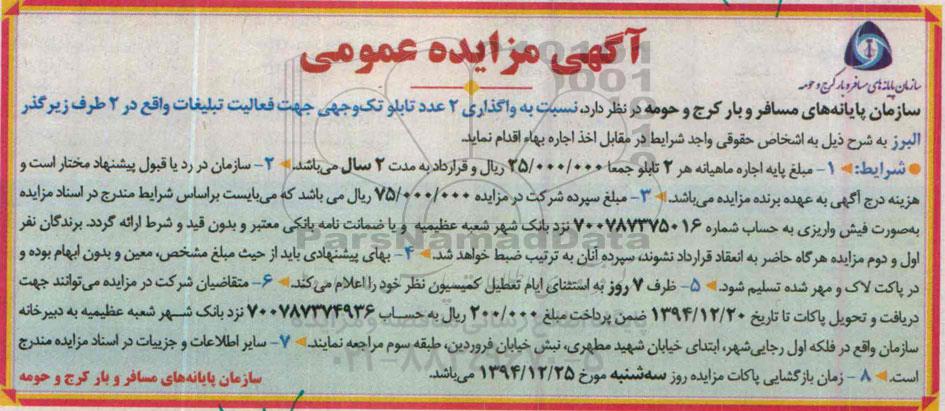 آگهی مزایده عمومی
سازمان پایانه‌های مسافر و بار کرج و حومه
سازمان پایانه‌های مسافر و بار کرج و حومه در نظر دارد، نسبت به واگذاری ۲ عدد تابلو تک‌وجهی جهت فعالیت تبلیغات واقع در ۲ طرف زیرگذر
البرز به شرح ذیل به اشخاص حقوقی واجد شرایط در مقابل اخذ اجاره بهاء اقدام نماید.
شرایط: ۱- مبلغ پایه اجاره ماهیانه هر ۲ تابلو جمعا ۲۵/۰۰۰/۰۰۰ ریال و قرارداد به مدت ۲ سال می‌باشد. ۲- سازمان در رد یا قبول پیشنهاد مختار است و
هزینه درج آگهی به عهده برنده مزایده می‌باشد. ۳- مبلغ سپرده شرکت در مزایده ۷۵/۰۰۰/۰۰۰ ریال می باشد که می‌بایست براساس شرایط مندرج در اسناد مزایده
به‌صورت فیش واریزی به حساب شماره ۷۰۰۷۸۷۳۷۵۰۱۶ نزد بانک شهر شعبه عظیمیه و یا ضمانت نامه بانکی معتبر و بدون قید و شرط ارائه گردد. برندگان نفر
اول و دوم مزایده هرگاه حاضر به انعقاد قرارداد نشوند، سپرده آنان به ترتیب ضبط خواهد شد. ۴- بهای پیشنهادی باید از حیث مبلغ مشخص، معین و بدون ابهام بوده و
در پاکت لاک و مهر شده تسلیم شود. ۵- ظرف ۷ روز به استثنای ایام تعطیل کمیسیون نظر خود را اعلام می‌کند. ۶- متقاضیان شرکت در مزایده می‌توانند جهت
دریافت و تحویل پاکات تا تاریخ ۱۳۹۴/۱۲/۲۰ ضمن پرداخت مبلغ ۲۰۰/۰۰۰ ریال به حساب ۷۰۰۷۸۷۳۷۴۹۳۶ نزد بانک شهر شعبه عظیمیه به دبیرخانه
سازمان واقع در فلکه اول رجایی‌شهر، ابتدای خیابان شهید مطهری، نبش خیابان فروردین، طبقه سوم مراجعه نمایند. ۷- سایر اطلاعات و جزییات در اسناد مزایده مندرج
است. ۸- زمان بازگشایی پاکات مزایده روز سه‌شنبه مورخ ۱۳۹۴/۱۲/۲۵ می‌باشد.
سازمان پایانه‌های مسافر و بار کرج و حومه
ParsNamadData